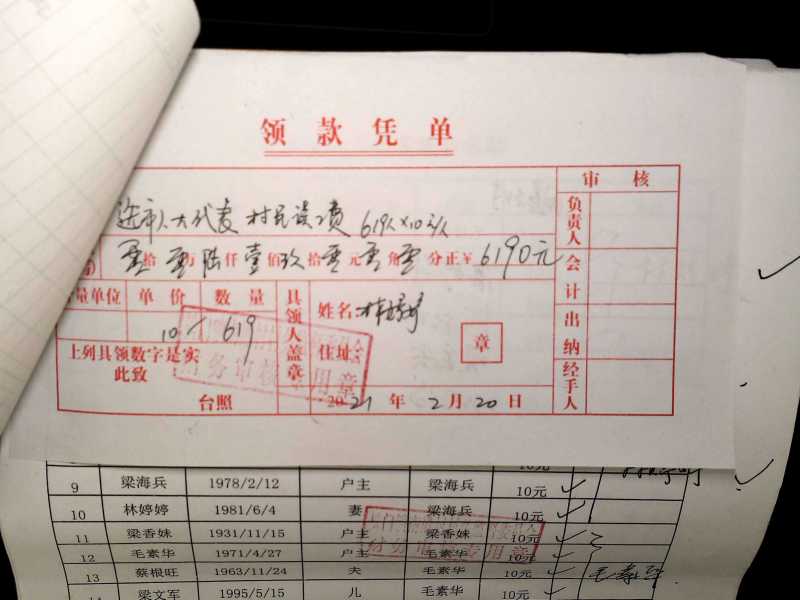 领款凭单
审核
选市人大代表 村民误工费 619人×10元/人
零拾零万陆仟壹佰玖拾零元零角零分正 6190元
量单位 单价 数量 具领人盖章 姓名: 林
10 619
住址: 章
上列具领数字是实
此致
台照 2021年2月20日
负责人
会计
出纳
经手人
财务审核专用章
10元
9 梁海兵 1978/2/12 户主 梁海兵 10元
10 林婷婷 1981/6/4 妻 梁海兵 10元
11 梁香妹 1931/11/15 户主 梁香妹 10元
12 毛素华 1971/4/27 户主 毛素华 10元
13 蔡根旺 1963/11/24 夫 毛素华 10元 毛素华
14 梁文军 1995/5/15 儿 毛素华 10元